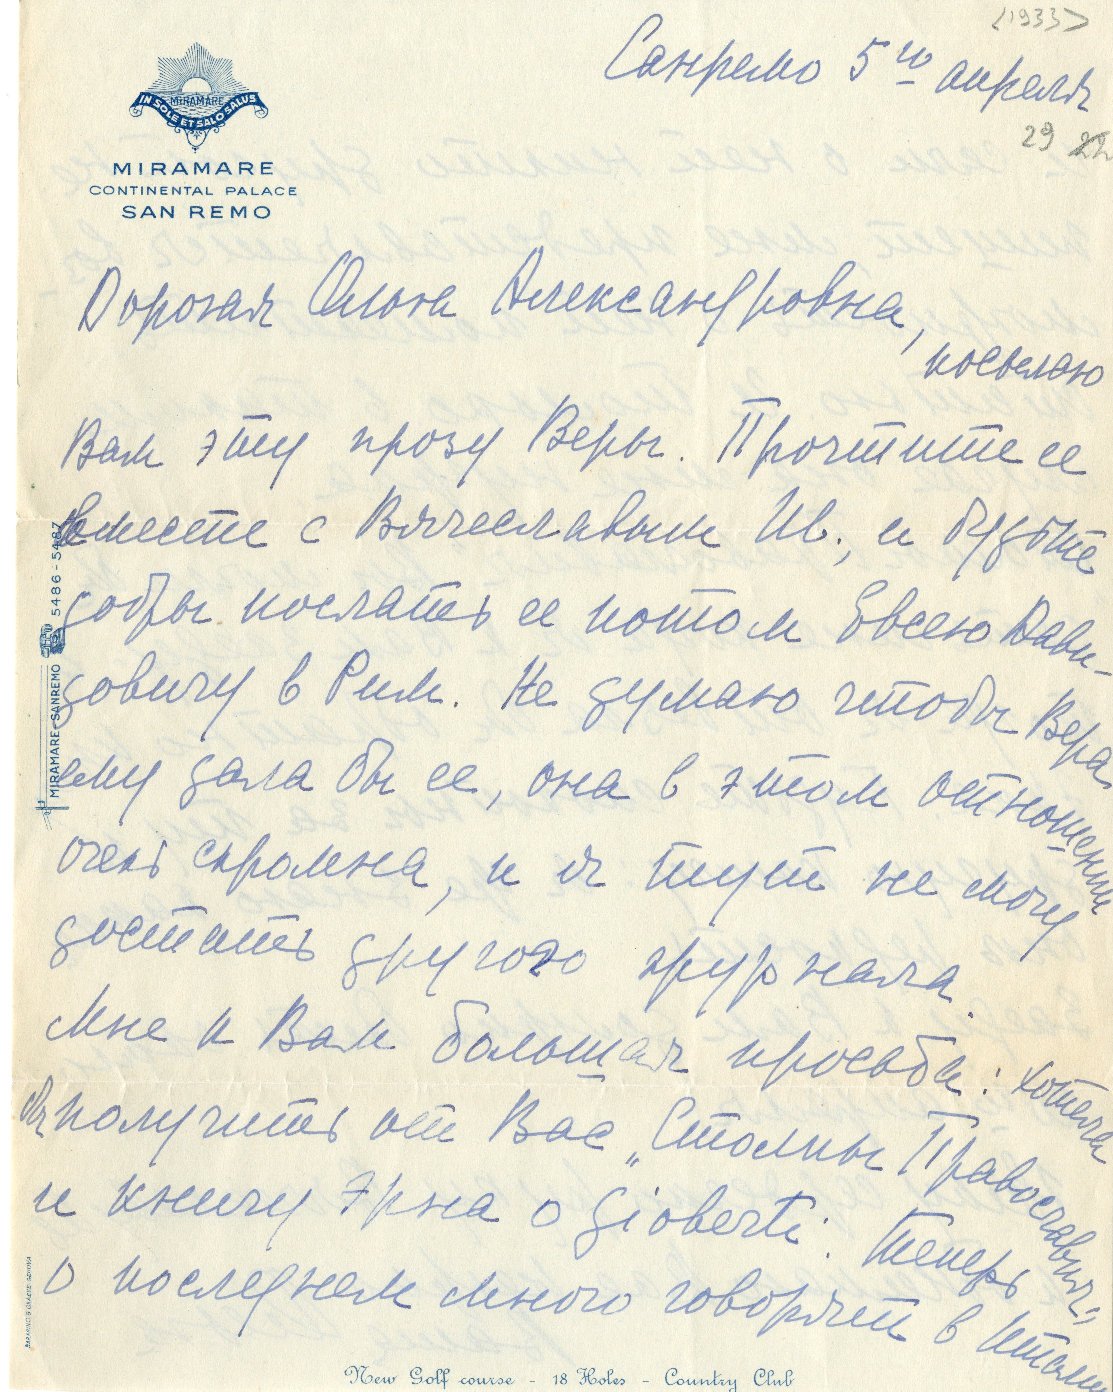 <1933>
Санремо 5го апреля
29
IN SOLE ET SALO SALUS
MIRAMARE
MIRAMARE
CONTINENTAL PALACE
SAN REMO
Дорогая Ольга Александровна,
посылаю
Вам эту прозу Веры. Прочтите ее
вместе с Вячеславым Ив., и будьте
добры послать ее потом Евсею Дави-
довичу в Рим. Не думаю чтобы Вера
ему дала бы ее, она в этом отношении
очень скромна, и я тут не могу
достать другого журнала.
Мне к Вам большая просьба: хотела
бы получить от Вас „Столпы Православия"
и книгу Эрна о Gioberti: теперь
о последнем много говорят в Италии
MIRAMARE-SANREMO 5486-5487
BARABINO & GRAEVE-GENOVA
New Golf course - 18 Holes - Country Club